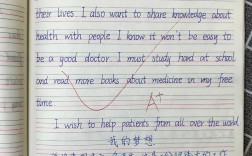 their lives. I also want to share knowledge about
health with people I know it won't be easy to
be a good doctor I must study hard at school
and read more books about medicine in my free
time.
A+
I wish to help patients from all over the world
我的梦想